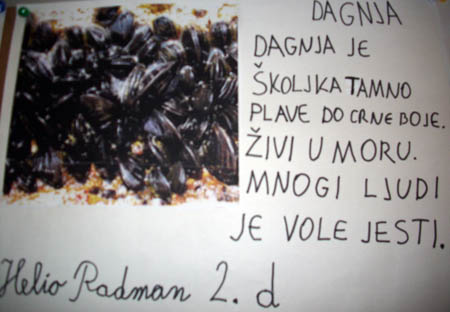 DAGNJA
DAGNJA JE
ŠKOLJKA TAMNO
PLAVE DO CRNE BOJE.
ŽIVI U MORU.
MNOGI LJUDI
JE VOLE JESTI.
Helio Radman 2. d